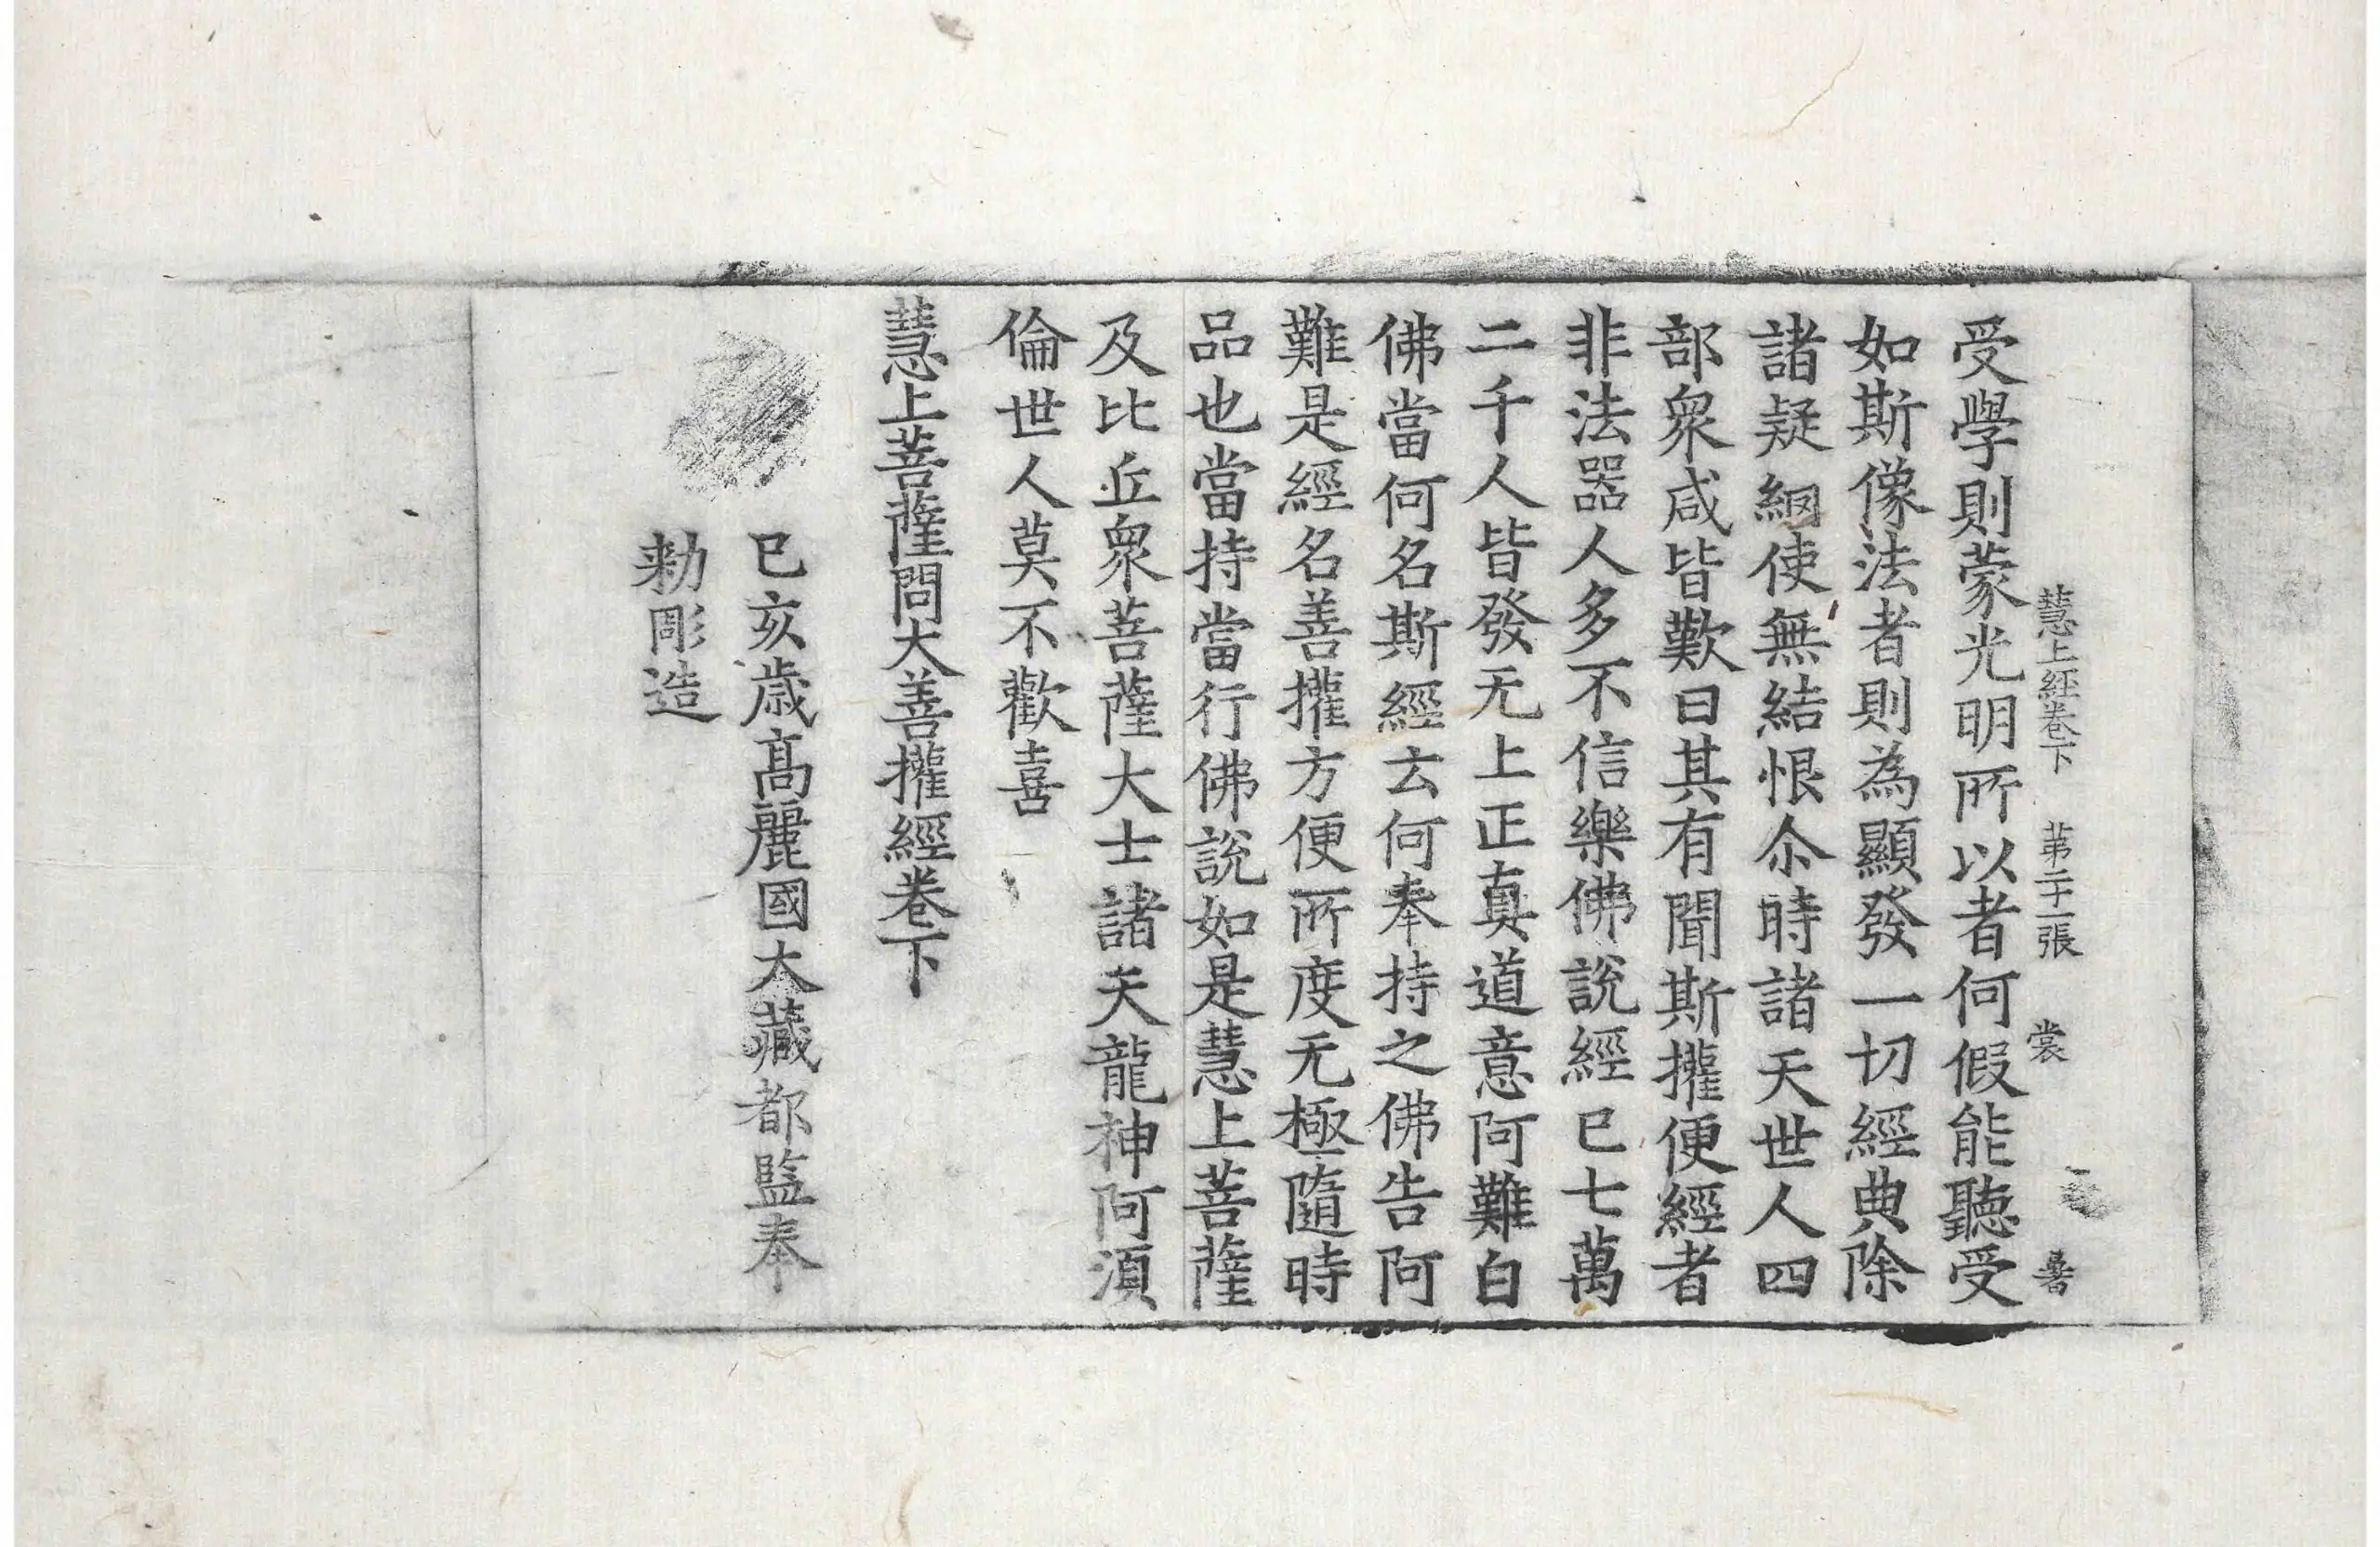 慧上経卷下 苐二十一張 裳
受學則蒙光明所以者何假能聽受
如斯像法者則為顯發一切經典除
諸疑網使無結恨尒時諸天世人四
部衆咸皆歎曰其有聞斯攉便經者
非法器人多不信樂佛說經已七萬
二千人皆發无上正真道意阿難白
佛當何名斯經云何奉持之佛告阿
難是經名善攉方便所度无極隨時
品也當持當行佛說如是慧上菩薩
及比丘衆菩薩大士諸天龍神阿湏
倫世人莫不歡喜
慧上菩薩問大善攉經卷下
已亥歲髙麗國大藏都監奉
勑彫造